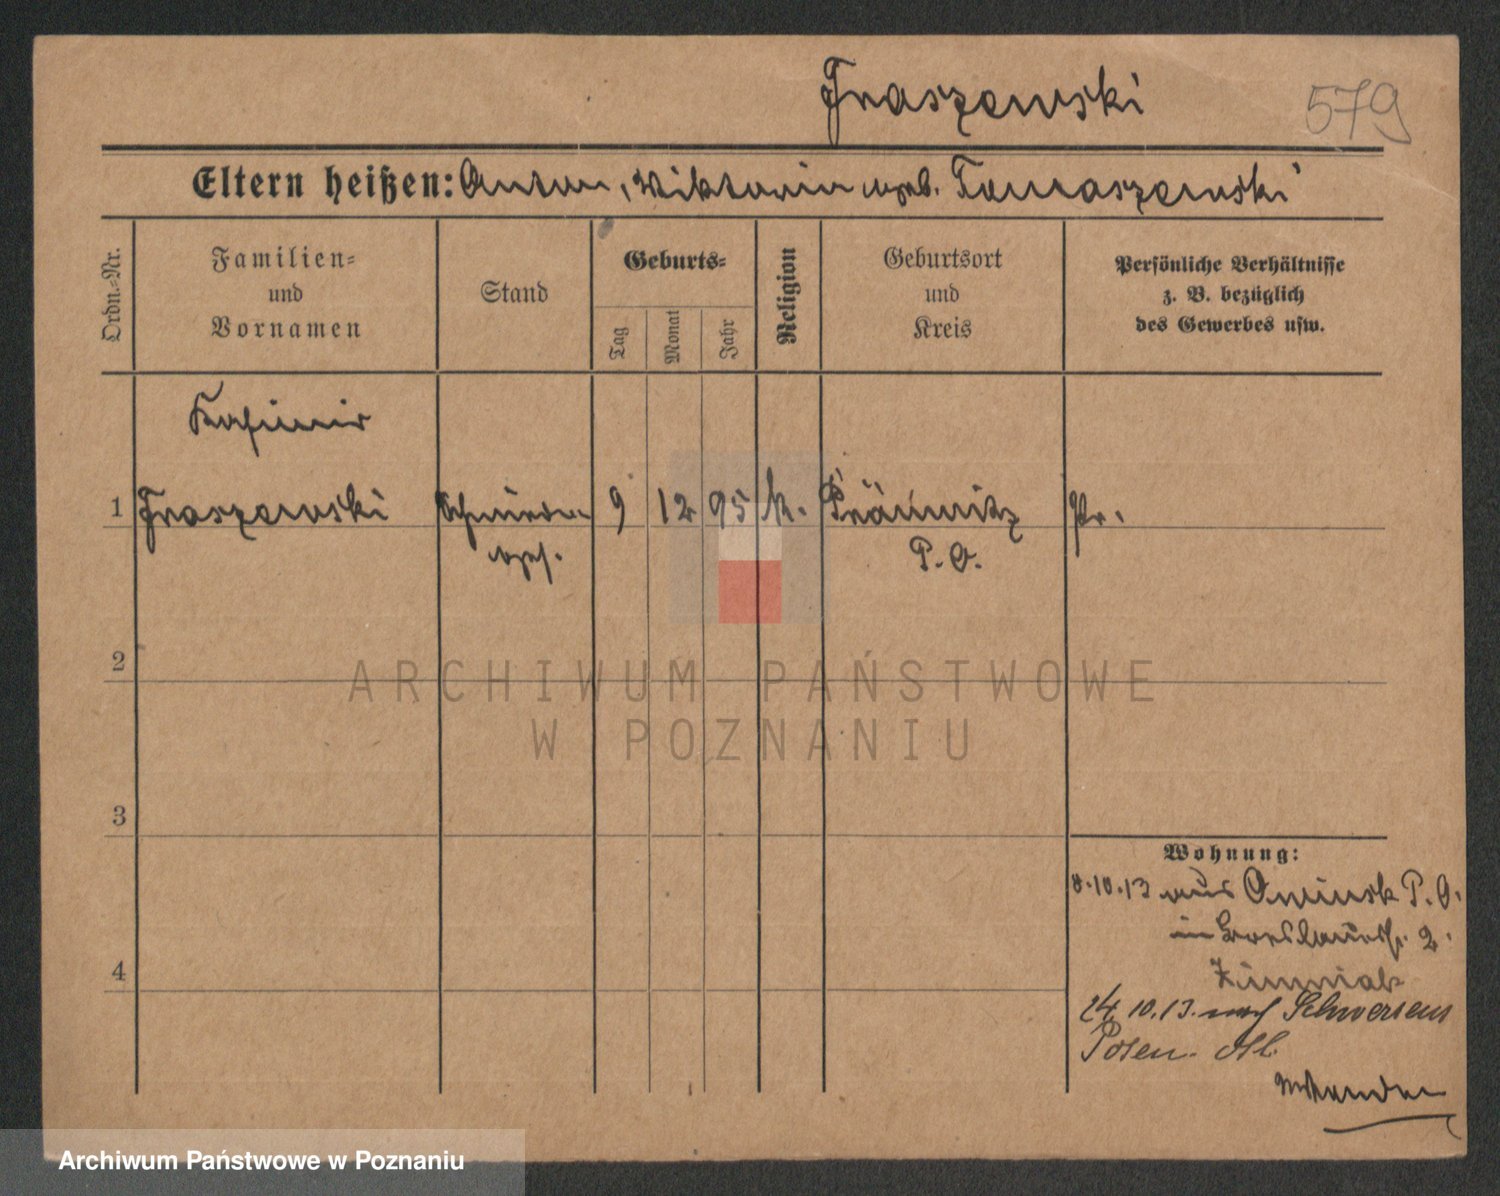 Fraszewski
579
Eltern heißen: Anton, Viktoria geb. Tomaszewski
Ordn.-Nr.
Familien-
und
Vornamen
Stand
Geburts-
Tag
Monat
Jahr
Religion
Geburtsort
und
Kreis
Persönliche Verhältnisse
z. B. bezüglich
des Gewerbes usw.
Kasimir
1 Fraszewski 9 12 95 k. Prämnitz Pr.
P. O.
2
ARCHIWUM PAŃSTWOWE
W POZNANIU
3
Wohnung:
8.10.13 aus Owinsk P. O.
in 2.
4
24.10.13. nach Schwersenz
Posen.
Archiwum Państwowe w Poznaniu